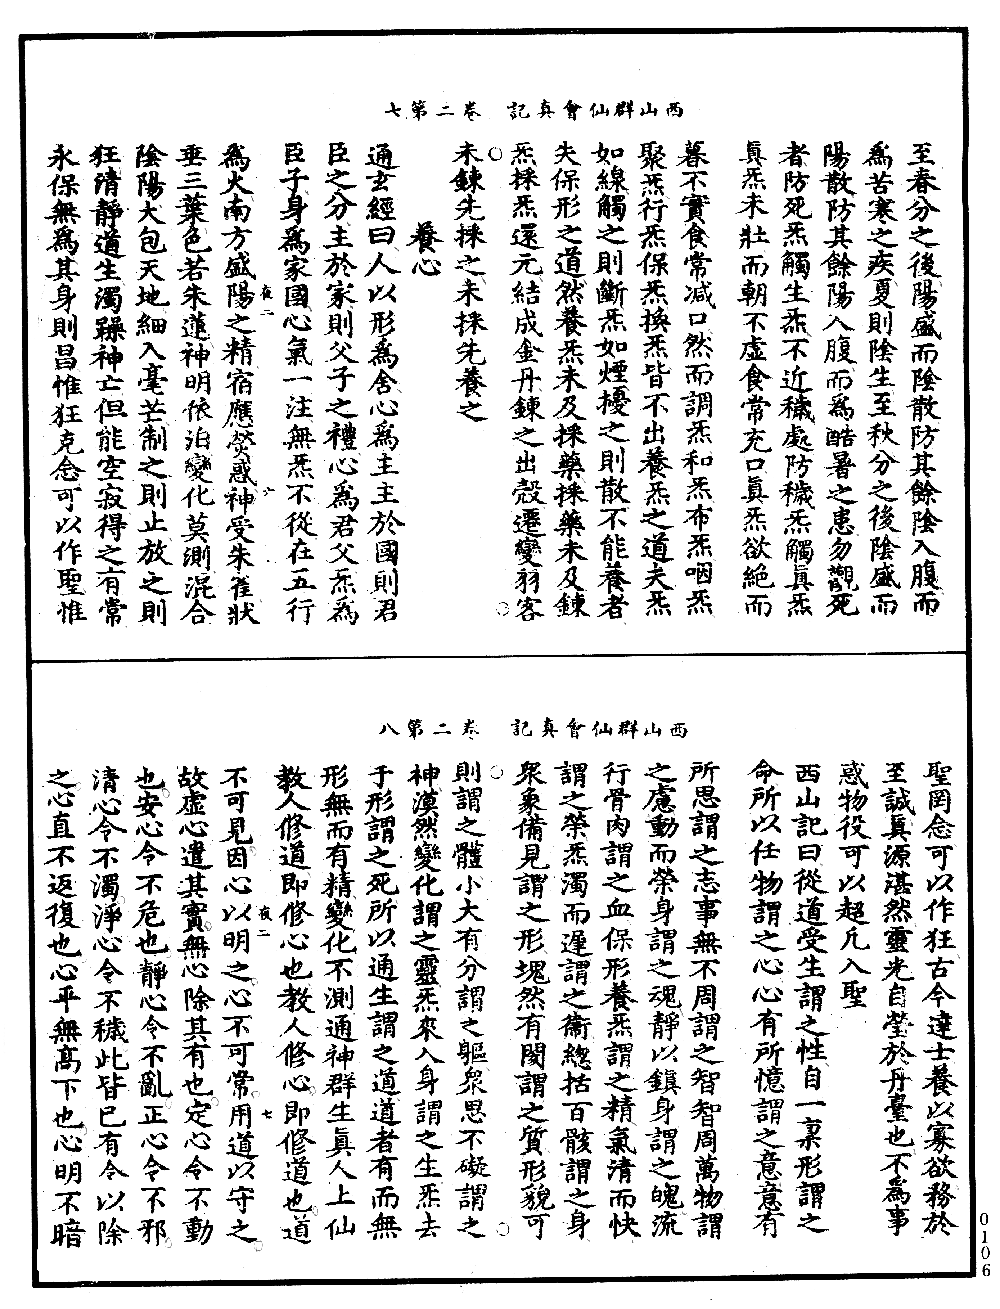 西山群仙會真記　卷二第七
至春分之後陽盛而陰散防其餘陰入腹而
為苦寒之疾夏則陰生至秋分之後陰盛而
陽散防其餘陽入腹而為酷暑之患勿覩死
者防死炁觸生炁不近穢處防穢炁觸真炁
真炁未壯而朝不虛食常充口真炁欲絕而
暮不實食常減口然而調炁和炁布炁咽炁
聚炁行炁保炁換炁皆不出養炁之道夫炁
如線觸之則斷炁如煙擾之則散不能養者
失保形之道然養炁未及採藥採藥未及鍊
炁採炁還元結成金丹鍊之出殼遷變羽客
未鍊先採之未採先養之
養心
通玄經曰人以形為舍心為主主於國則君
臣之分主於家則父子之禮心為君父炁為
臣子身為家國心氣一注無炁不從在五行
為火南方盛陽之精宿應熒惑神受朱雀狀
垂三葉色若朱蓮神明依泊變化莫測混合
陰陽大包天地細入毫芒制之則止放之則
狂清靜道生濁躁神亡但能空寂得之有常
永保無為其身則昌惟狂克念可以作聖惟
夜二
六
西山群仙會真記　卷二第八
聖罔念可以作狂古今達士養以寡欲務於
至誠真源湛然靈光自瑩於丹臺也不為事
惑物役可以超凡入聖
西山記曰從道受生謂之性自一稟形謂之
命所以任物謂之心心有所憶謂之意意有
所思謂之志事無不周謂之智智周萬物謂
之慮動而榮身謂之魂靜以鎮身謂之魄流
行骨肉謂之血保形養炁謂之精氣清而快
謂之榮炁濁而遲謂之衞總括百骸謂之身
眾象備見謂之形塊然有閡謂之質形貌可
則謂之體小大有分謂之軀眾思不礙謂之
神漠然變化謂之靈炁來入身謂之生炁去
于形謂之死所以通生謂之道道者有而無
形無而有精變化不測通神群生真人上仙
教人修道即修心也教人修心即修道也道
不可見因心以明之心不可常用道以守之
故虛心遣其實無心除其有也定心令不動
也安心令不危也靜心令不亂正心令不邪
清心令不濁淨心令不穢此皆已有令以除
之心直不返復也心平無高下也心明不暗
夜二
七
0106